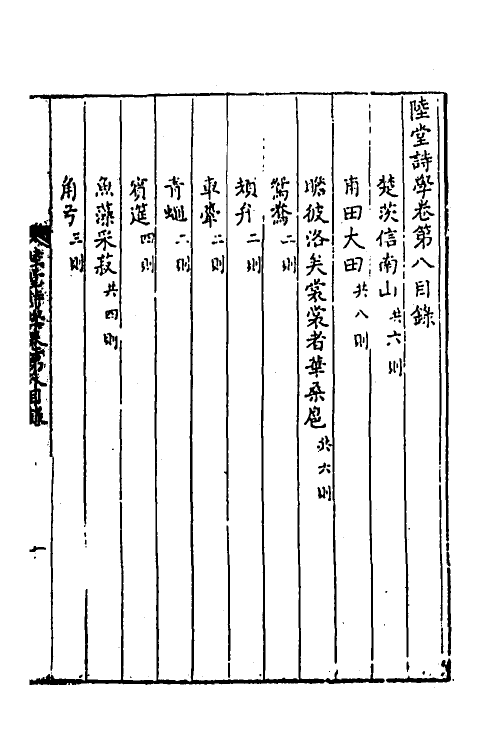 陸堂詩學卷第八目錄
楚茨信南山共六則
甫田大田共八則
瞻彼洛矣裳裳者華桑扈共六則
鴛鴦二則
頍弁二則
車舝二則
青蠅二則
賓筵四則
魚藻采菽共四則
角弓三則
陸堂詩學卷第八目錄
一